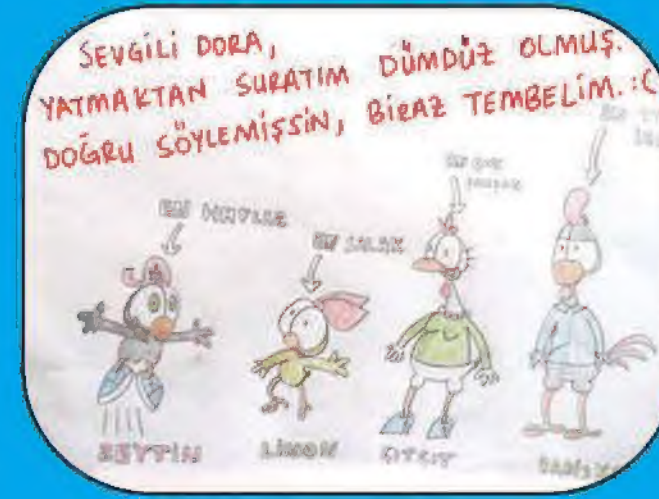 SEVGİLİ DORA,
YATMAKTAN SURATIM DÜMDÜZ OLMUŞ.
DOĞRU SÖYLEMİŞSİN, BİRAZ TEMBELİM. :C
EN
EN ÇOK
EN
EN SALAK
ZEYTİN
LİMON